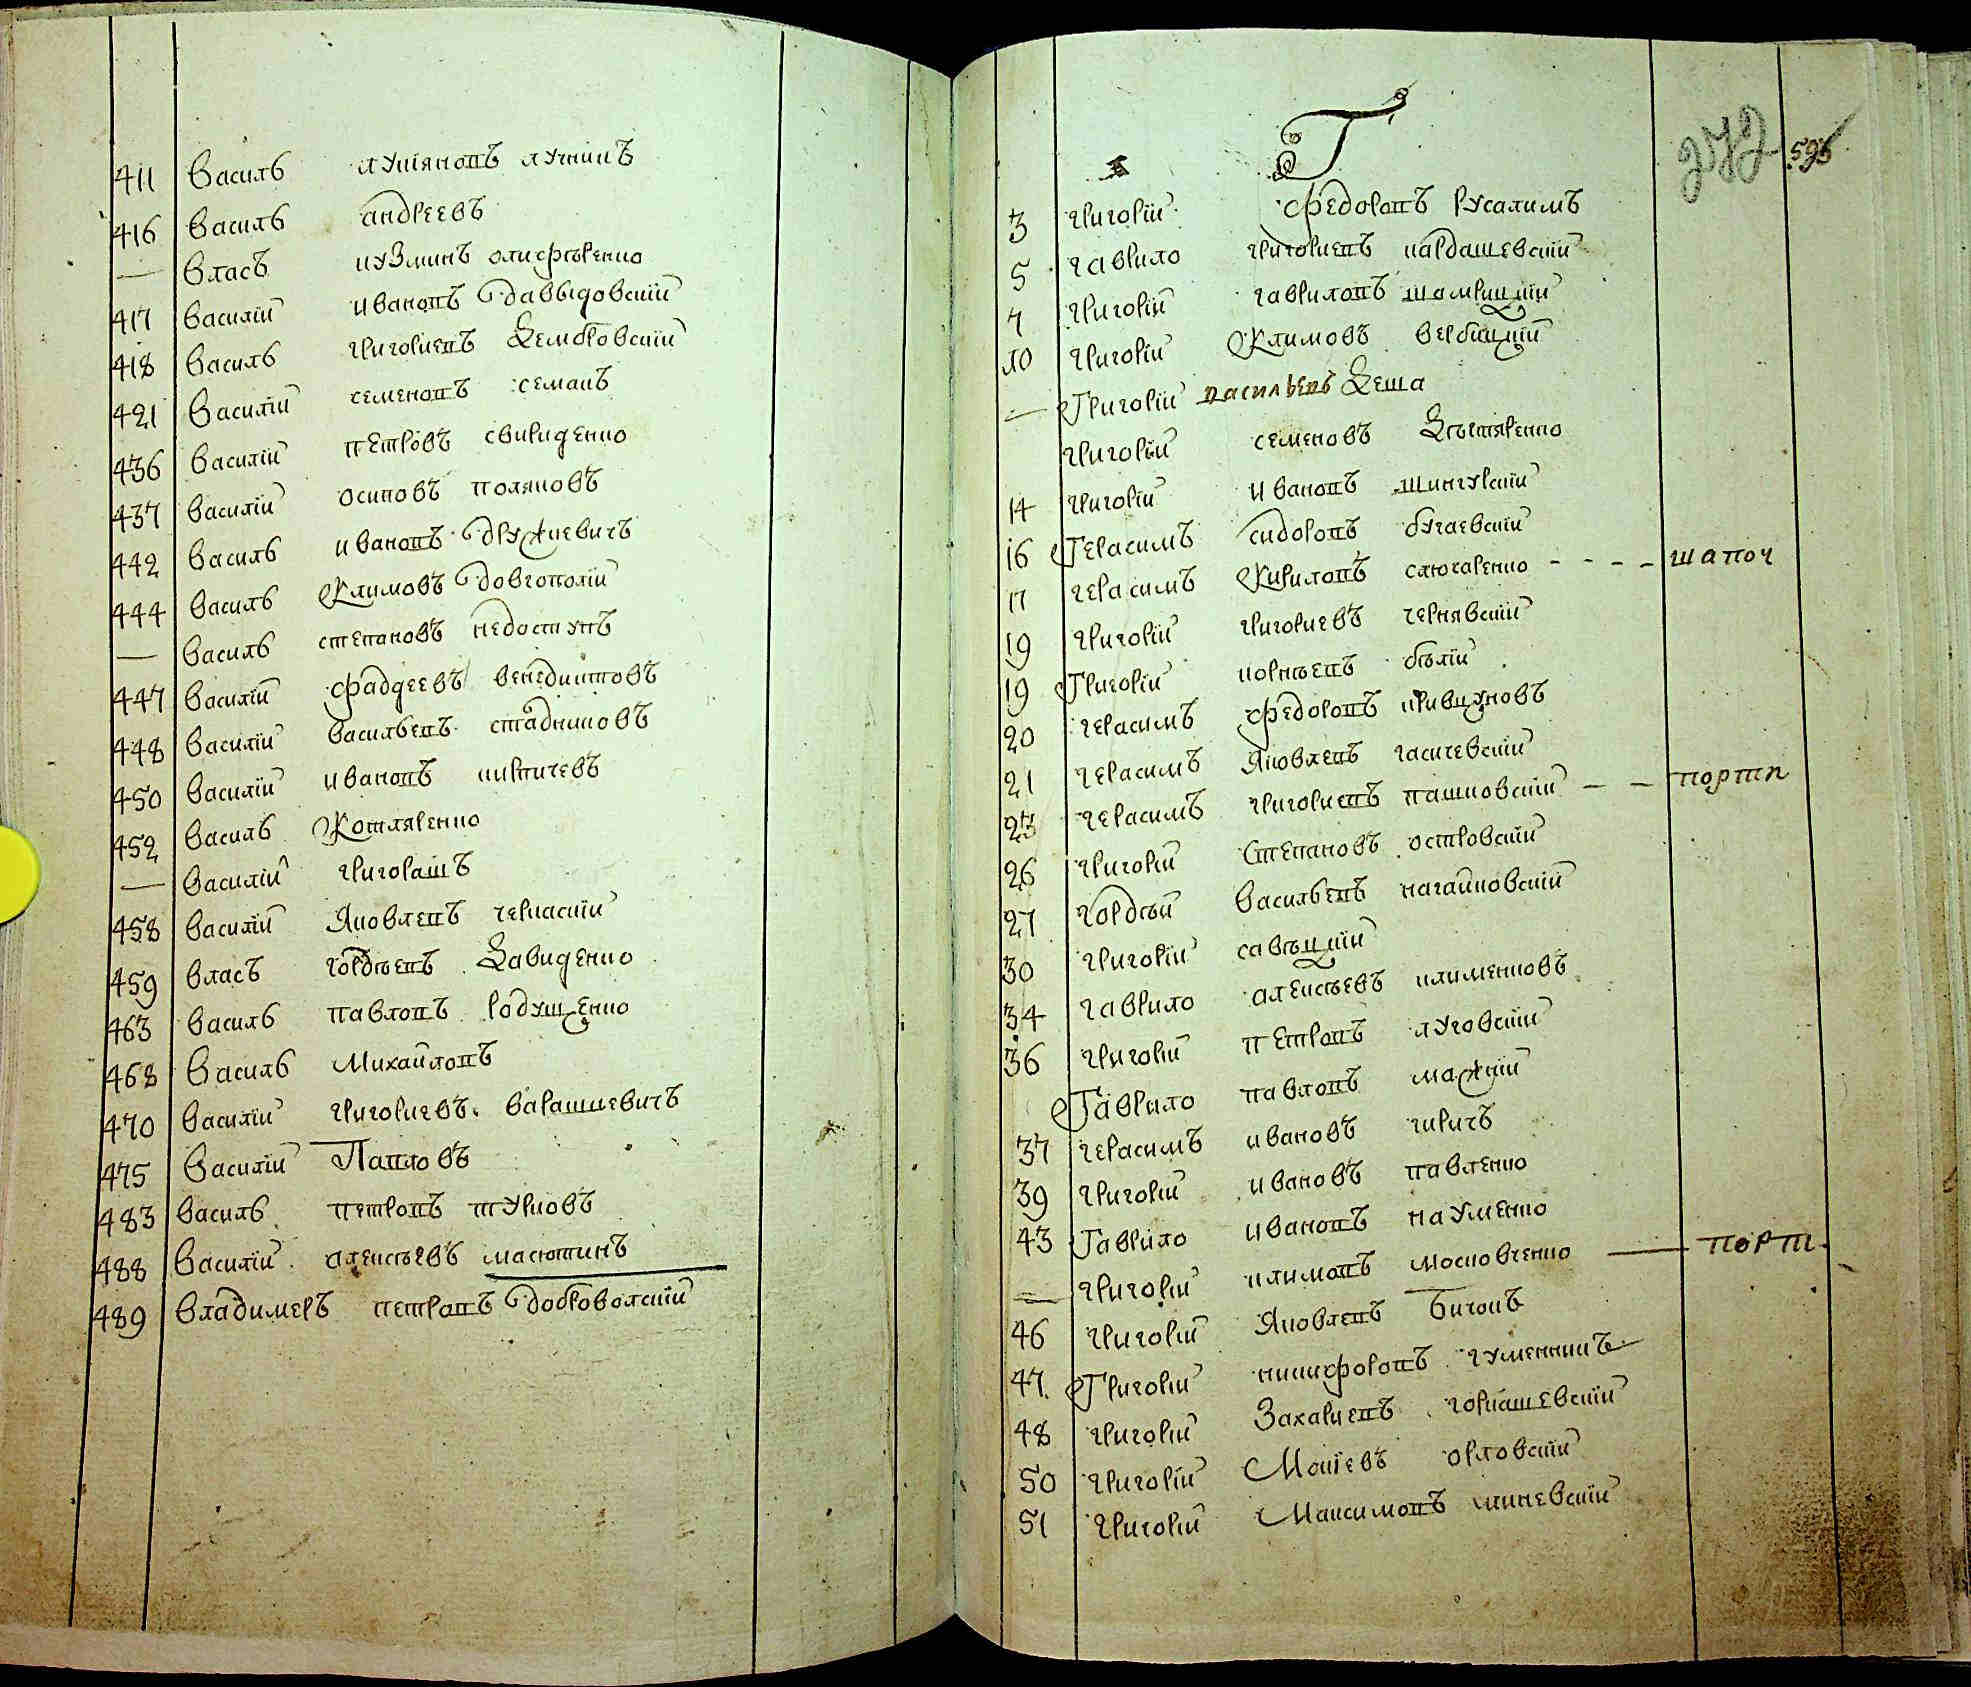 411 Василь лукіяновъ лучникъ
416 Василь андреевъ
— Власъ кузминъ олисфѣренко
417 Василій ивановъ давыдовскій
418 Василь григориевъ Зембровскій
421 Василій семеновъ семакъ
436 Василій петровъ свириденко
437 Василій осиповъ поляковъ
442 Василь ивановъ дружкевичъ
444 Василь Климовъ довгополій
— Василь степановъ недоступъ
447 Василій фаддеевъ венедиктовъ
448 Василій васильевъ стадниковъ
450 Василій ивановъ кирпичевъ
452 Василь Котляренко
— Василій григорашъ
458 Василій Яковлевъ черкаскій
459 власъ гордѣевъ Завиденко
463 Василь павловъ родущенко
468 Василь Михайловъ
470 Василій григоричевъ варашкевичъ
475 Василій Папковъ
483 Василь петровъ турковъ
488 Василій алексѣевъ масютинъ
489 владимеръ петровъ доброволскій
Г
272 596
3 григорій федоровъ русалимъ
5 гаврило григориевъ кардашевскій
7 григорій гавриловъ шомрицкій
10 григорій Климовъ вербицкій
— Григорій васильевъ Зеша
григорій семеновъ
14 григорій ивановъ шингурскій
16 Герасимъ сидоровъ бугаевскій
17 герасимъ Кириловъ слюсаренко - - - - шапоч
19 григорій григориевъ чернявскій
19 Григорій корнѣевъ бѣлій
20 герасимъ федоровъ кривцуновъ
21 герасимъ Яковлевъ гасичевскій
23 герасимъ григориевъ пашковскій — — портн
26 григорій Степановъ островскій
27 гордѣй васильевъ нагайновскій
30 григорій савѣцкій
34 гаврило алексѣевъ клименковъ
36 григорій петровъ луговскій
Гаврило павловъ мажній
37 герасимъ ивановъ гиричъ
39 григорій ивановъ павленко
43 Гаврило ивановъ науменко
— григорій климовъ московченко — порт
46 григорій Яковлевъ Бигонъ
47 Григорій никифоровъ гуменникъ
48 григорій Захариевъ горкашевскій
50 григорій Мокіевъ орловскій
51 григорій Максимовъ линевскій